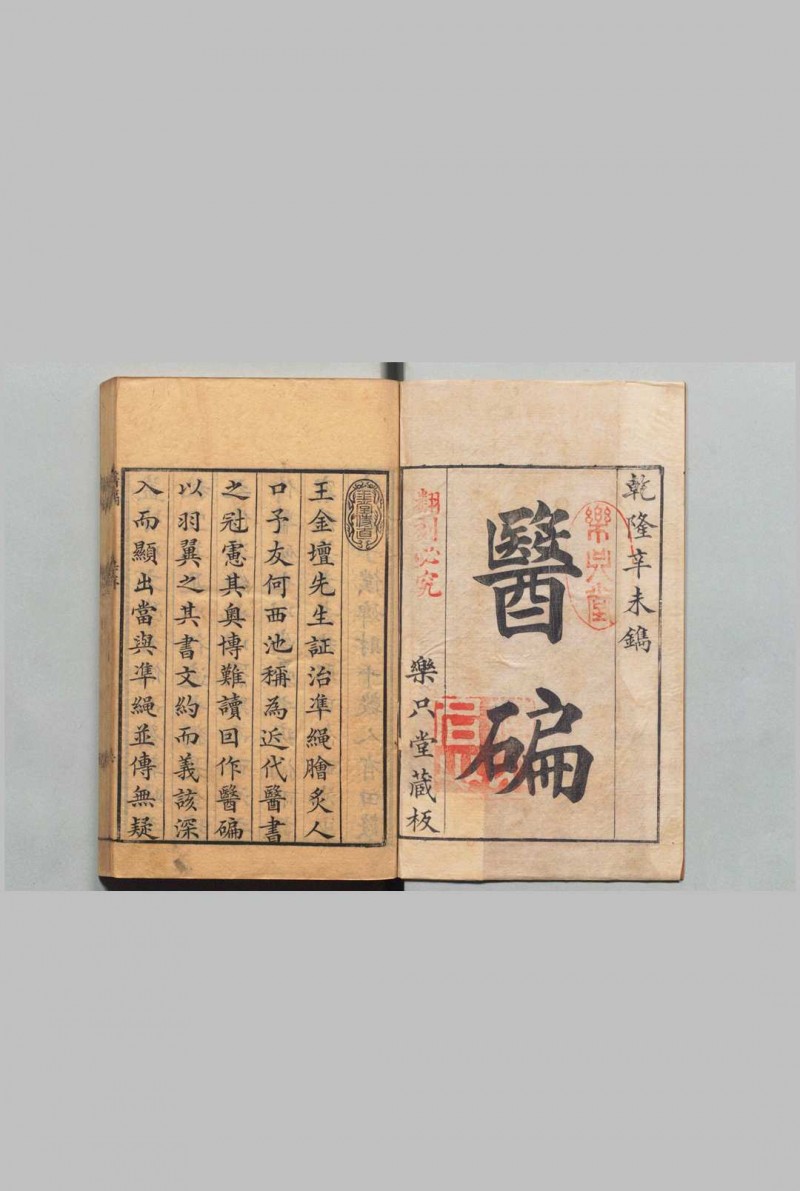 乾隆辛未鐫
樂只堂
醫碥
翻刻必究
樂只堂藏板
王金壇先生証治準繩膾炙人
口予友何西池稱為近代醫書
之冠憲其奥博難讀回作醫碥
以羽翼之其書文約而義該深
入而顯出當與準繩並傳無疑